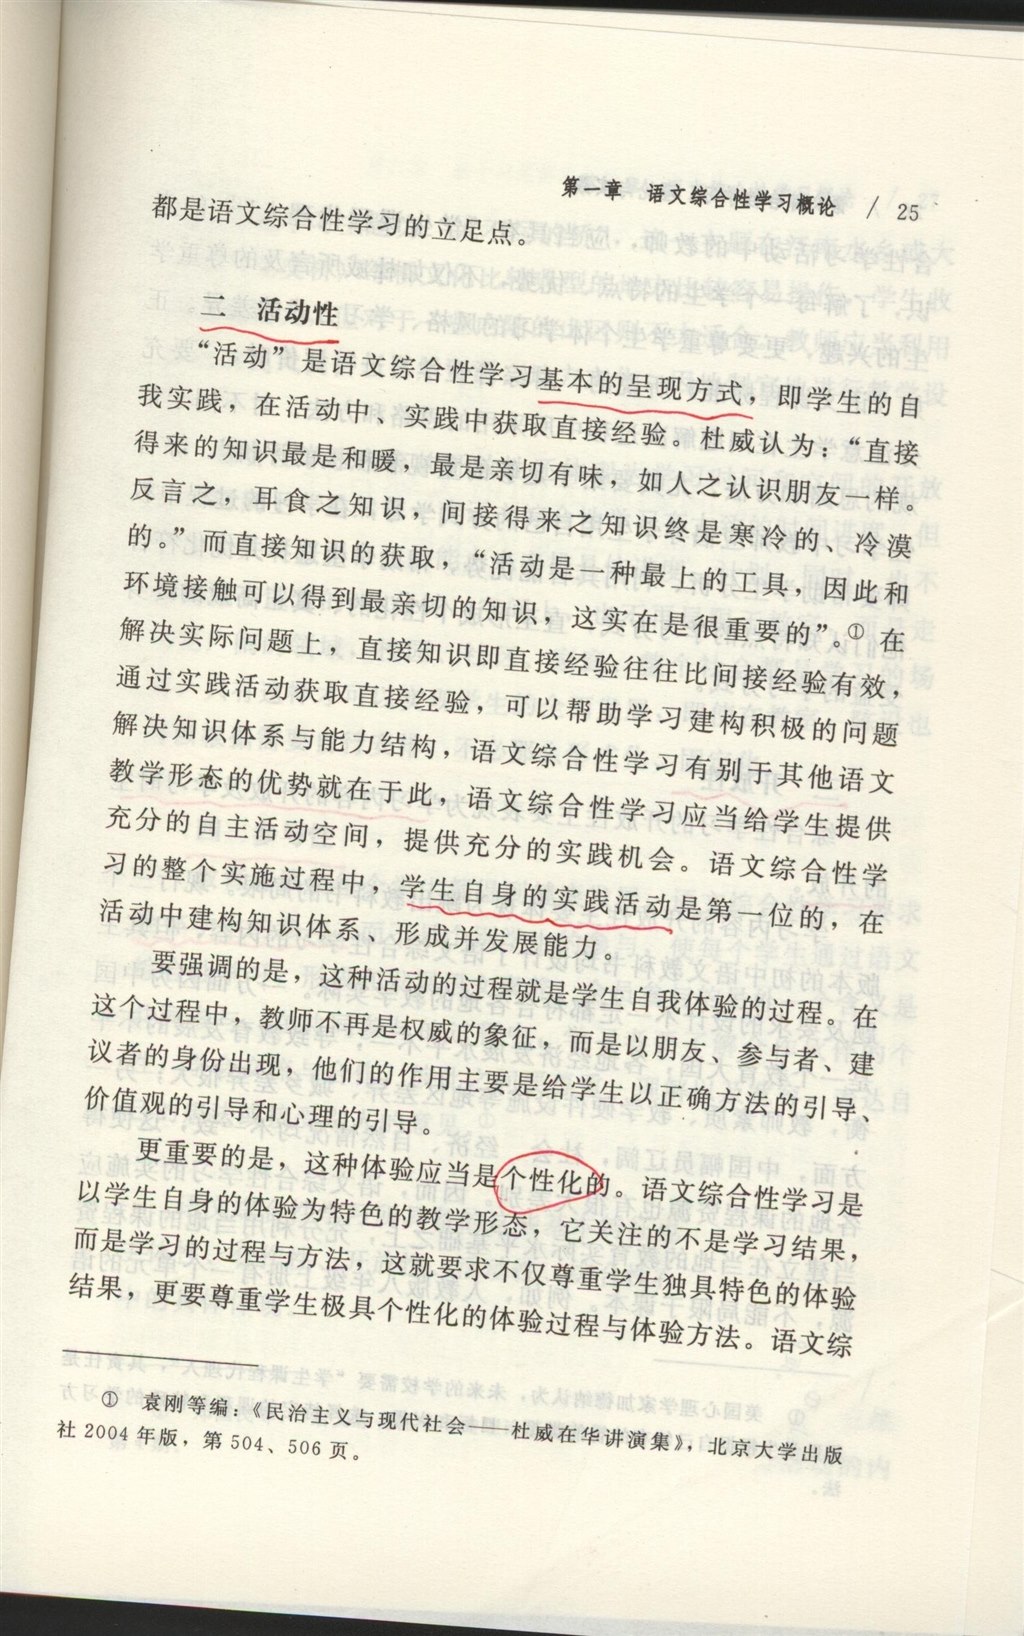 第一章　语文综合性学习概论　/　25
都是语文综合性学习的立足点。
二　活动性
“活动”是语文综合性学习基本的呈现方式，即学生的自
我实践，在活动中、实践中获取直接经验。杜威认为：“直接
得来的知识最是和暖，最是亲切有味，如人之认识朋友一样。
反言之，耳食之知识，间接得来之知识终是寒冷的、冷漠
的。”而直接知识的获取，“活动是一种最上的工具，因此和
环境接触可以得到最亲切的知识，这实在是很重要的”。① 在
解决实际问题上，直接知识即直接经验往往比间接经验有效，
通过实践活动获取直接经验，可以帮助学习建构积极的问题
解决知识体系与能力结构，语文综合性学习有别于其他语文
教学形态的优势就在于此，语文综合性学习应当给学生提供
充分的自主活动空间，提供充分的实践机会。语文综合性学
习的整个实施过程中，学生自身的实践活动是第一位的，在
活动中建构知识体系、形成并发展能力。
要强调的是，这种活动的过程就是学生自我体验的过程。在
这个过程中，教师不再是权威的象征，而是以朋友、参与者、建
议者的身份出现，他们的作用主要是给学生以正确方法的引导、
价值观的引导和心理的引导。
更重要的是，这种体验应当是个性化的。语文综合性学习是
以学生自身的体验为特色的教学形态，它关注的不是学习结果，
而是学习的过程与方法，这就要求不仅尊重学生独具特色的体验
结果，更要尊重学生极具个性化的体验过程与体验方法。语文综
①　袁刚等编：《民治主义与现代社会——杜威在华讲演集》，北京大学出版
社 2004 年版，第 504、506 页。